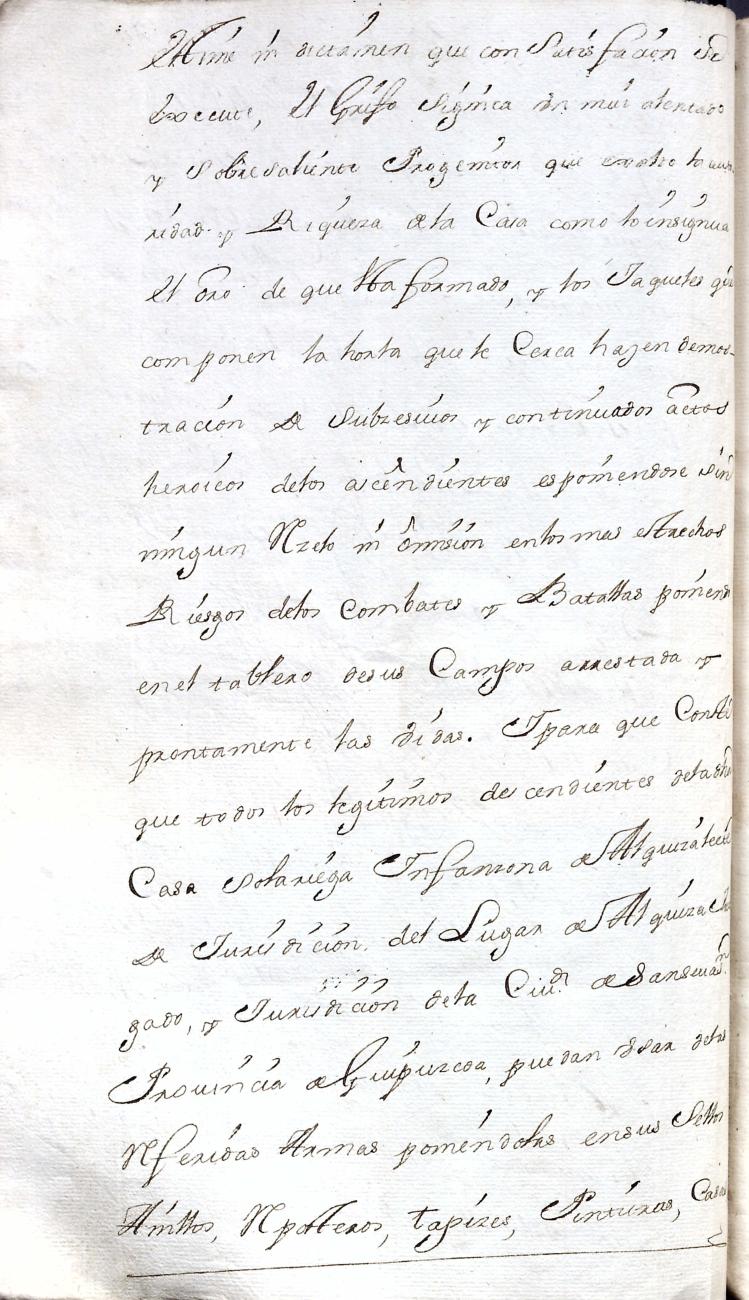 mi dictamen que con Satisfacion se
execute, El Grifo Significa Un mui alentado
y sobresaliente Progenitor que
ridad y Riqueza de la Casa como lo insignua
el oro de que Ha formado, y los Jaqueles que
componen la horla que le Cerca hazen demos-
tracion de subzesivos y continuados actos
heroicos delos ascendientes esponiendose sin
ningun Rezelo ni omision enlos mas estrechos
Riesgos delos Combates y Batallas poniendo
en el tablero desus Campos arrestada y
prontamente las Vidas. Ipara que
que todos los legitimos decendientes dela dha
Casa Solariega Infanzona de
de Jurisdicion del Lugar de Alquiza
gado, y Jurisdicion dela Ciud. de Sansevan
Provincia de Guipuzcoa, puedan Usar delas
Referidas Armas poniendolas ensus Sellos
Anillos, Reposteros, tapizes, Pinturas, Casas